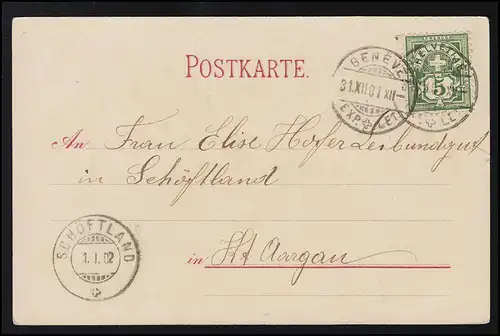 POSTKARTE.
GENEVE
31.XII.01 XII
EXP. LET.
HELVETIA
5
An Frau Elise Hofer Leibundgut
in Schöftland
SCHÖFTLAND
1.I.02
in Kt Aargau